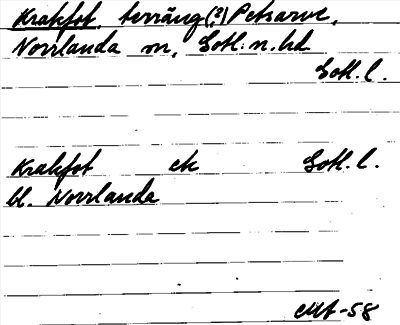 Krakfot, terräng(?) Petsarve,
Norrlanda sn, Gotl. n. hd
Gotl. l.
Krakfot ek Gotl. l.
bl. Norrlanda
-58